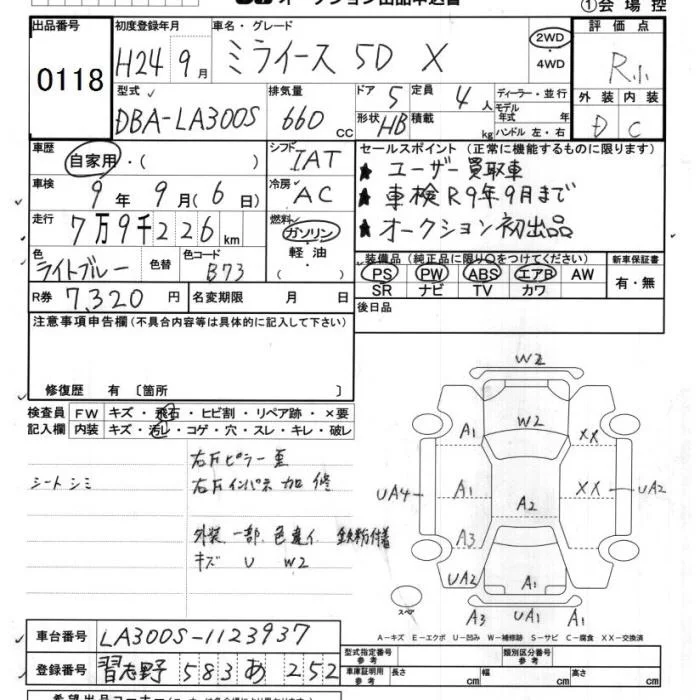 オークション出品申込書
①会場控
出品番号
0118
初度登録年月
H24年 9月
車名・グレード
ミライース 5D X
2WD
・
4WD
評価点
R小
外装 内装
D C
型式
DBA-LA300S
排気量
660 CC
ドア 5
定員 4人
形状 HB
積載 kg
ディーラー・並行
モデル年式 年
ハンドル 左・右
車歴
自家用・( )
シフト
IAT
セールスポイント (正常に機能するものに限ります)
★ ユーザー買取車
★ 車検R9年9月まで
★ オークション初出品
車検
9年 9月(6日)
冷房
AC
走行
7万9千226km
燃料
ガソリン
・
軽油
・
( )
色
ライトブルー
色替
色コード
B73
装備品 (純正品に限り○をつけてください)
PS PW ABS エアB AW
SR ナビ TV カワ
新車保証書
有・無
R券 7,320円
名変期限 月 日
後日品
注意事項申告欄(不具合内容等は具体的に記入して下さい)
修復歴 有 〔箇所 〕
検査員 FW キズ・飛石・ヒビ割・リペア跡・×要
記入欄 内装 キズ・汚レ・コゲ・穴・スレ・キレ・破レ
シート シミ
右Fピラー 歪
右Fインパネ 加修
外装 一部 色違イ 鉄粉付着
キズ U W2
W2
W2
A1
XX
UA4
A1
A2
XX
UA2
A3
UA2
A1
スペア
A3
UA1
A1
A-キズ E-エクボ U-凹み W-補修跡 S-サビ C-腐食 XX-交換済
車台番号 LA300S-1123937
登録番号 習志野 583 あ 252
型式指定番号
参考
類別区分番号
参考
車庫証明用
参考
長さ cm
幅 cm
高さ cm